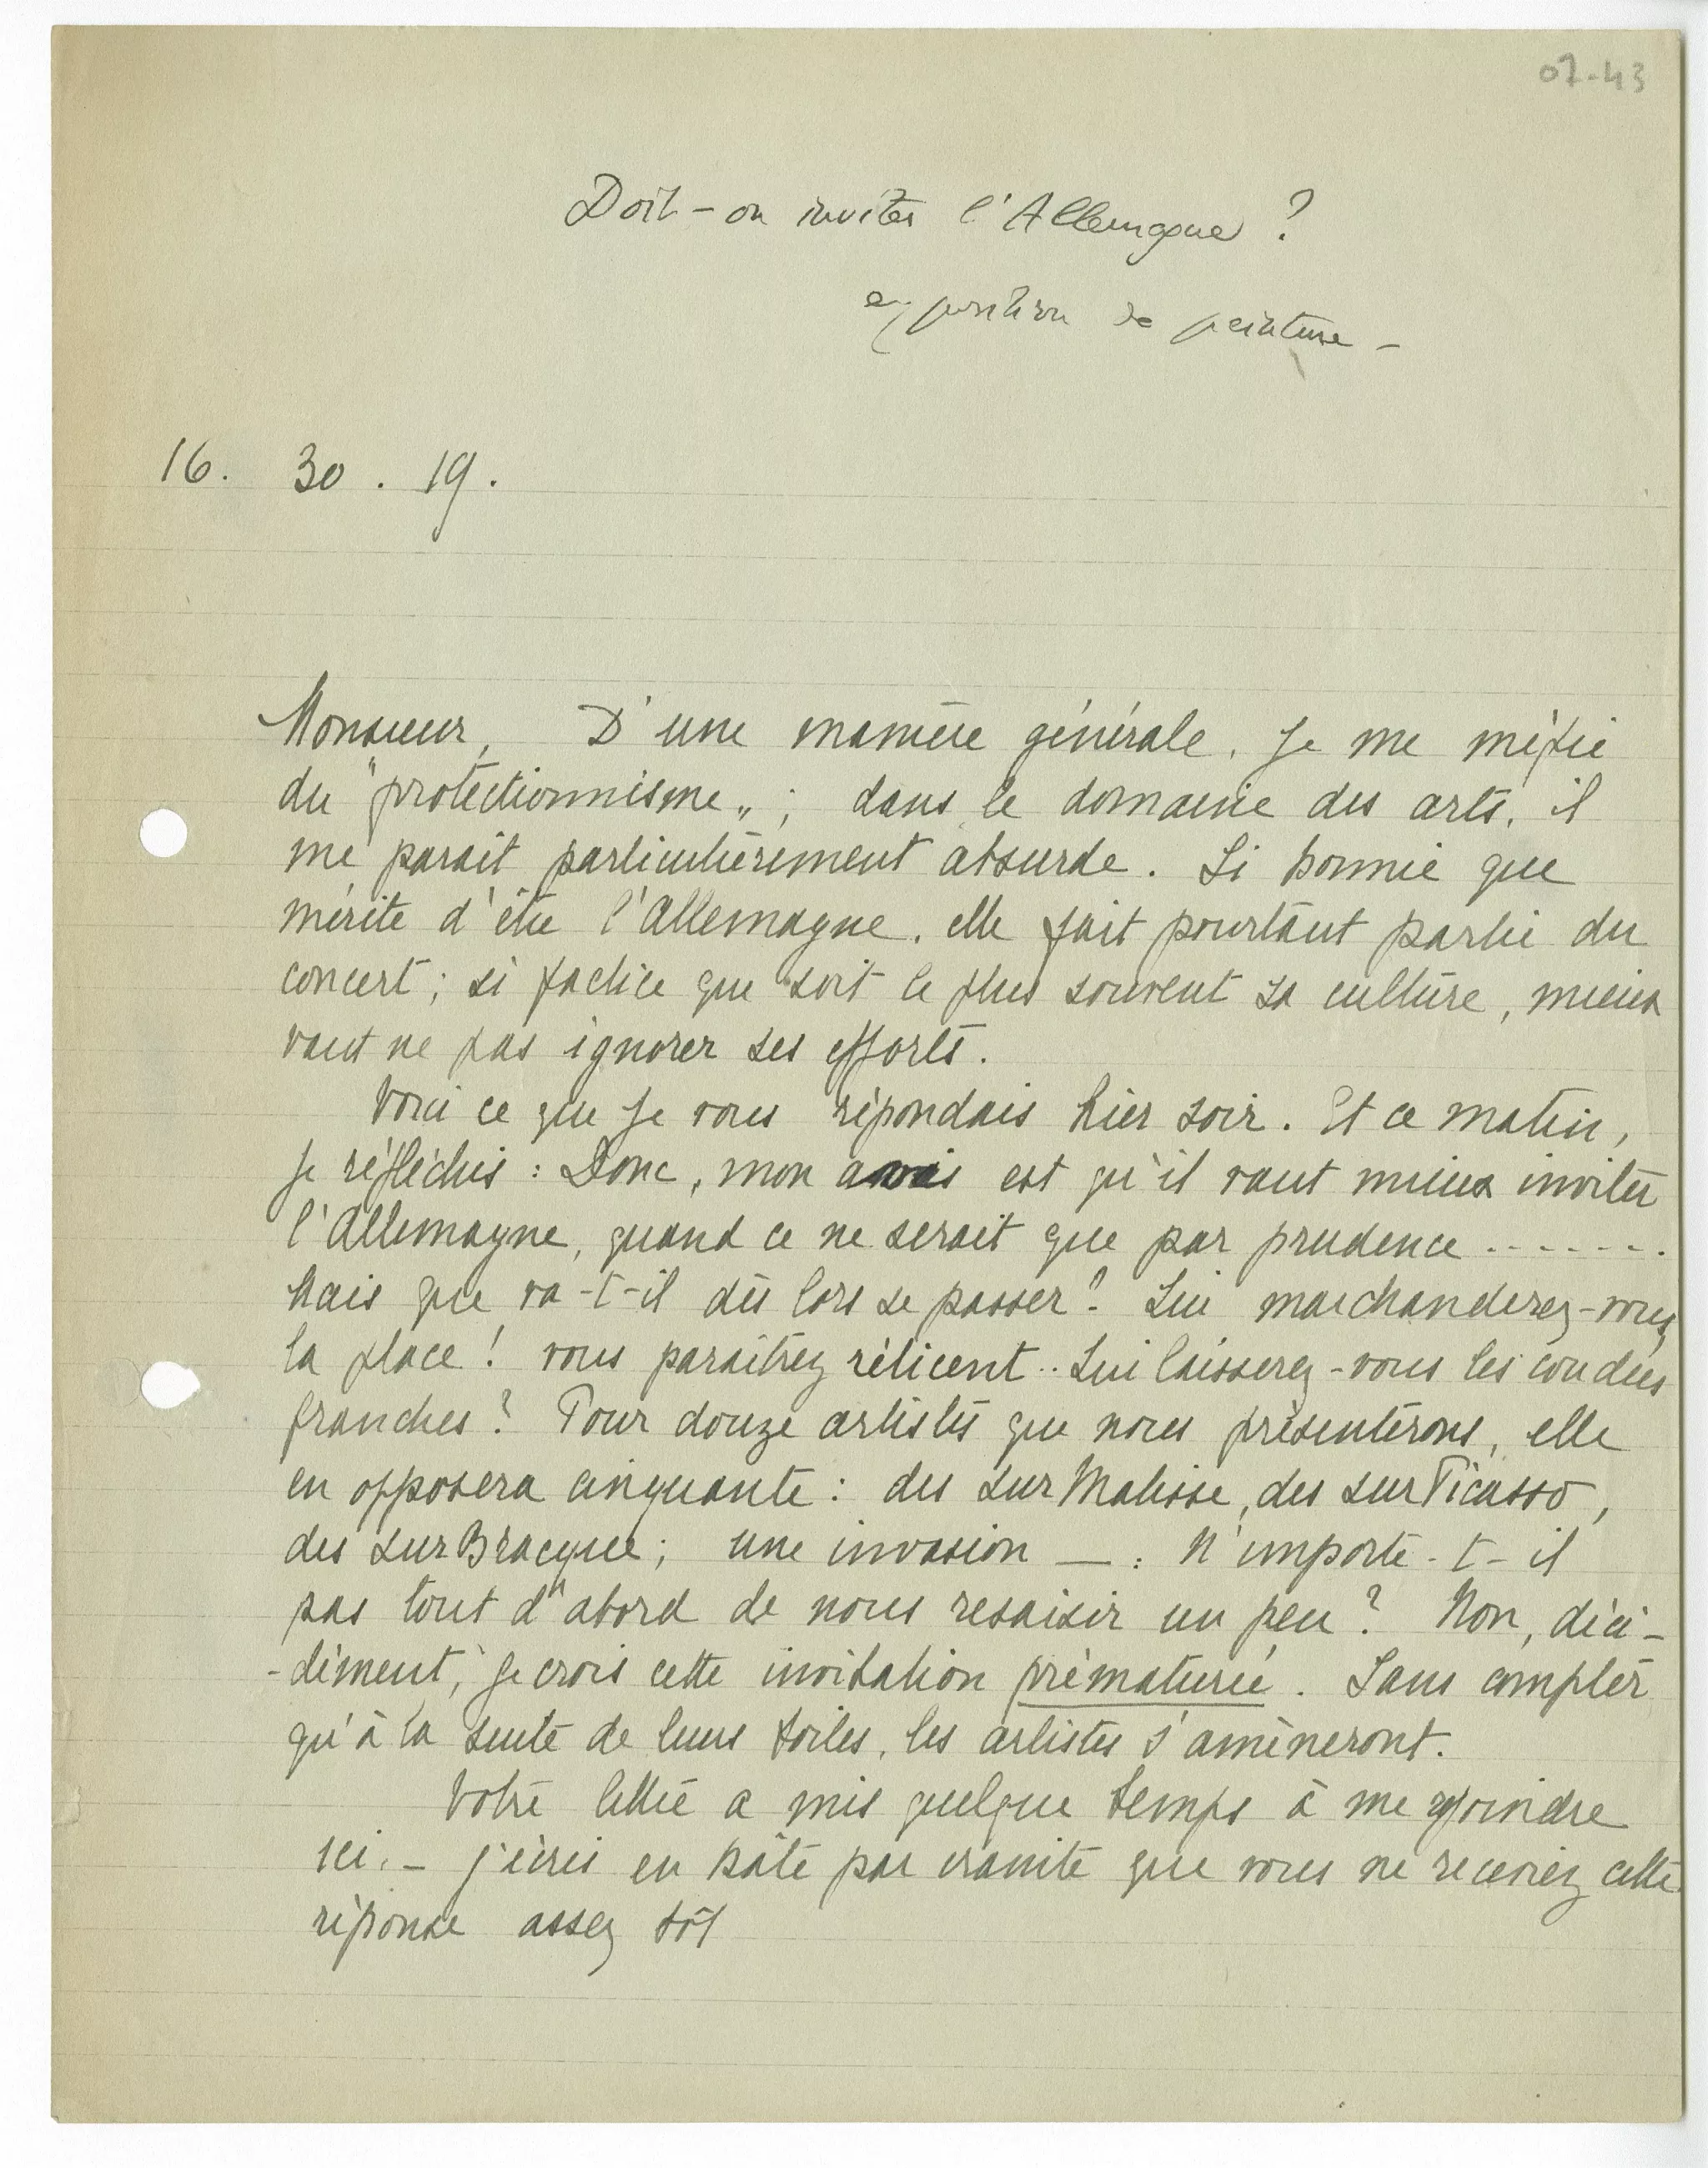 07-43
Doit-on inviter l'Allemagne ?
exposition de peinture -
16. 30. 19.
Monsieur, D'une manière générale. je me méfie
du "protectionnisme„ ; dans le domaine des arts, il
me parait particulièrement absurde. Si honnie que
mérite d'être l'Allemagne. elle fait pourtant partie du
concert ; si factice que soit le plus souvent sa culture, mieux
vaut ne pas ignorer ses efforts.
Voici ce que je vous répondais hier soir. Et ce matin,
je réfléchis : Donc, mon avis est qu'il vaut mieux inviter
l'Allemagne, quand ce ne serait que par prudence .......
Mais que va-t-il dès lors se passer ? Lui marchanderez-vous
la place ! vous paraîtrez réticent .. Lui laisserez-vous les coudées
franches ? Pour douze artistes que nous présenterons, elle
en opposera cinquante : des sur Matisse, des sur Picasso,
des sur Bracque ; une invasion — : N'importe-t-il
pas tout d'abord de nous resaisir un peu ? Non, déci-
-dément, je crois cette invitation prématurée. Sans compter
qu'à la suite de leurs toiles, les artistes s'amèneront.
Votre lettre a mis quelque temps à me rejoindre
ici. - j'écris en hâte par crainte que vous ne receviez cette
réponse assez tôt